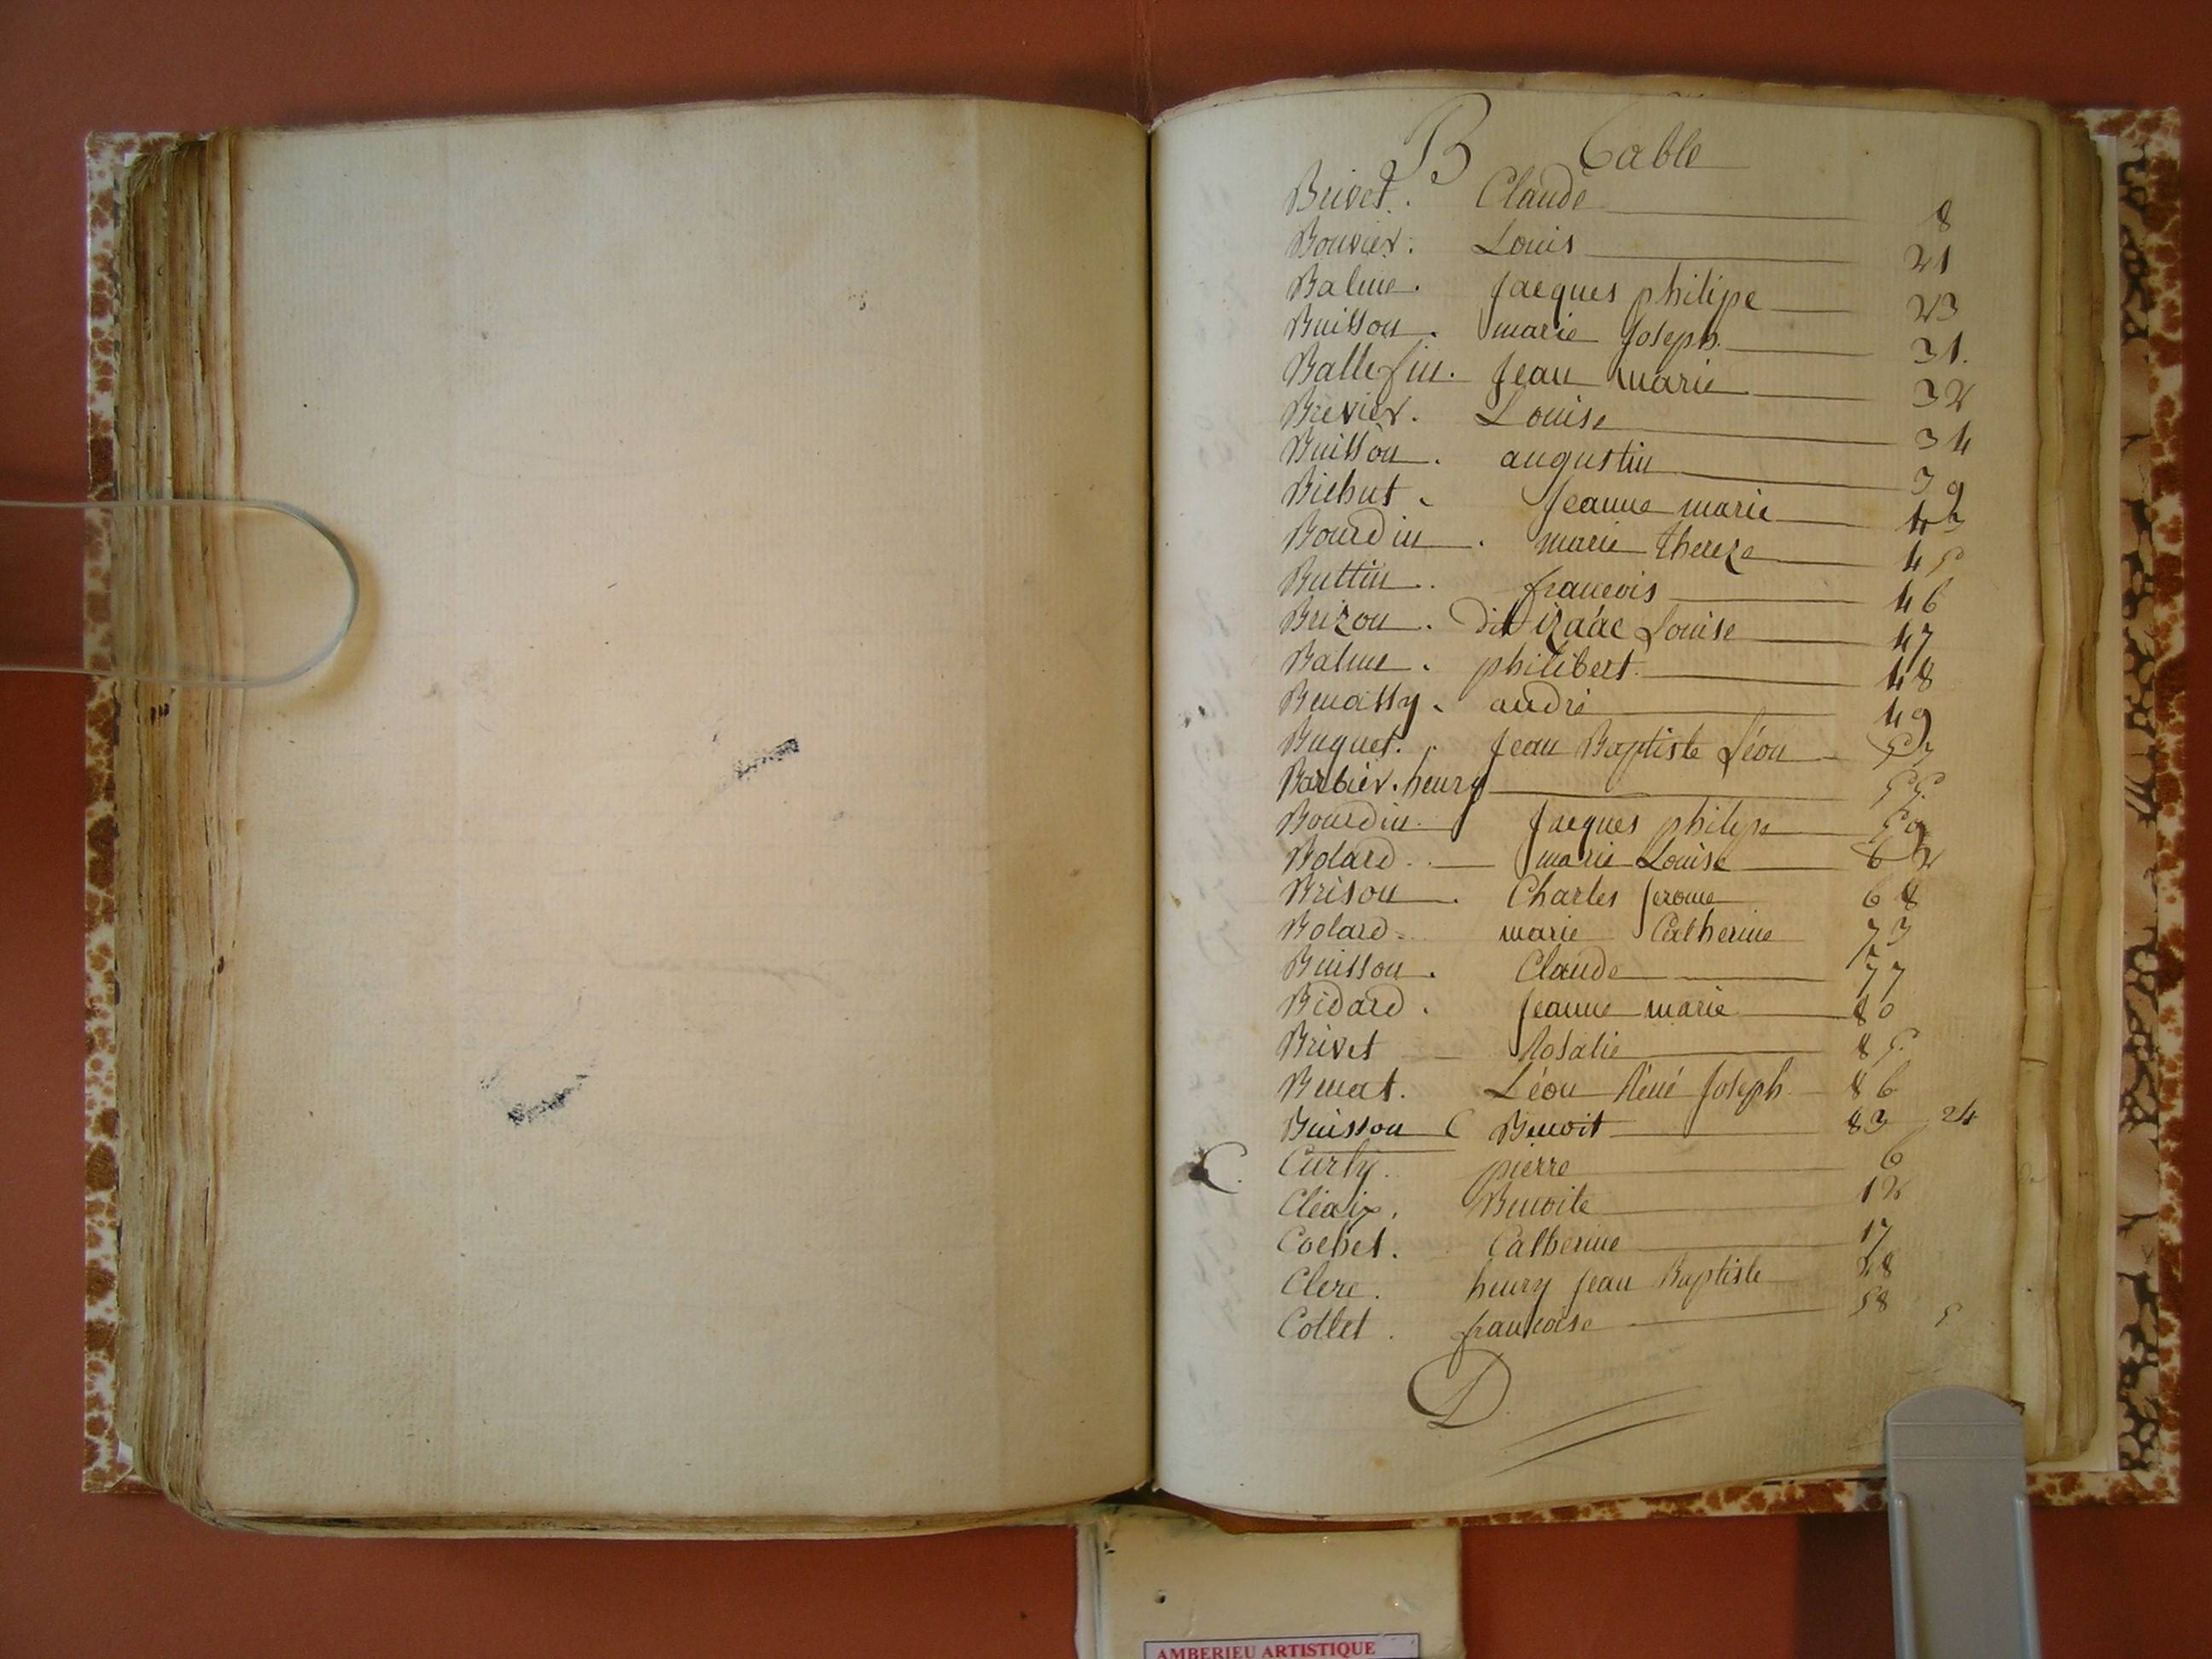 B Table
Brivet. Claude 8
Bouvier. Louis 21
Balme. Jacques philipe 23
Buisson. marie Joseph. 31.
Ballefin. Jean marie 32
Brevier. Louise 34
Buisson. augustin 39
Bichut. Jeanne marie 43
Bourdin. marie thereze 45
Buttin. francois 46
Brizon. dit izaac Louise 47
Balme. philibert 48
Benassy. andré 49
Buguet. Jean Baptiste Léon 53
Barbier. henry 55
Bourdin. Jacques philipe 59
Bolard. marie Louise 62
Brison. Charles Jerome 68
Bolard. marie Catherine 73
Buisson. Claude 77
Bidard. Jeanne marie 80
Brivet Rosalie 85.
Benat. Léon Réné Joseph 86
Buisson C Benoit 83 24
C. Curty. pierre 6
Benoite 12
Cochet. Catherine 17
Clere. henry Jean Baptiste 28
Collet. francoise 58 5
D
AMBERIEU ARTISTIQUE